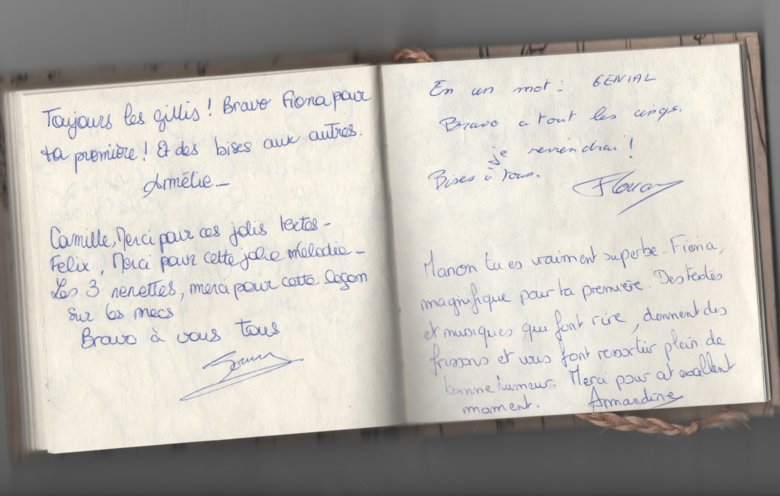 Toujours les gillis ! Bravo Fiona pour
ta première ! Et des bises aux autres.
Amélie_
Camille, Merci pour ces jolis textes_
Felix, Merci pour cette jolie mélodie_
Les 3 nenettes, merci pour cette leçon
sur les mecs
Bravo à vous tous
En un mot : GENIAL
Bravo a tout les cinqs.
je reviendrai !
Bises à tous.
Manon tu es vraiment superbe. Fiona,
magnifique pour ta première. Des textes
et musiques qui font rire, donnent des
frissons et vous font ressortir plein de
bonne humeur. Merci pour cet excellent
moment. Armandine